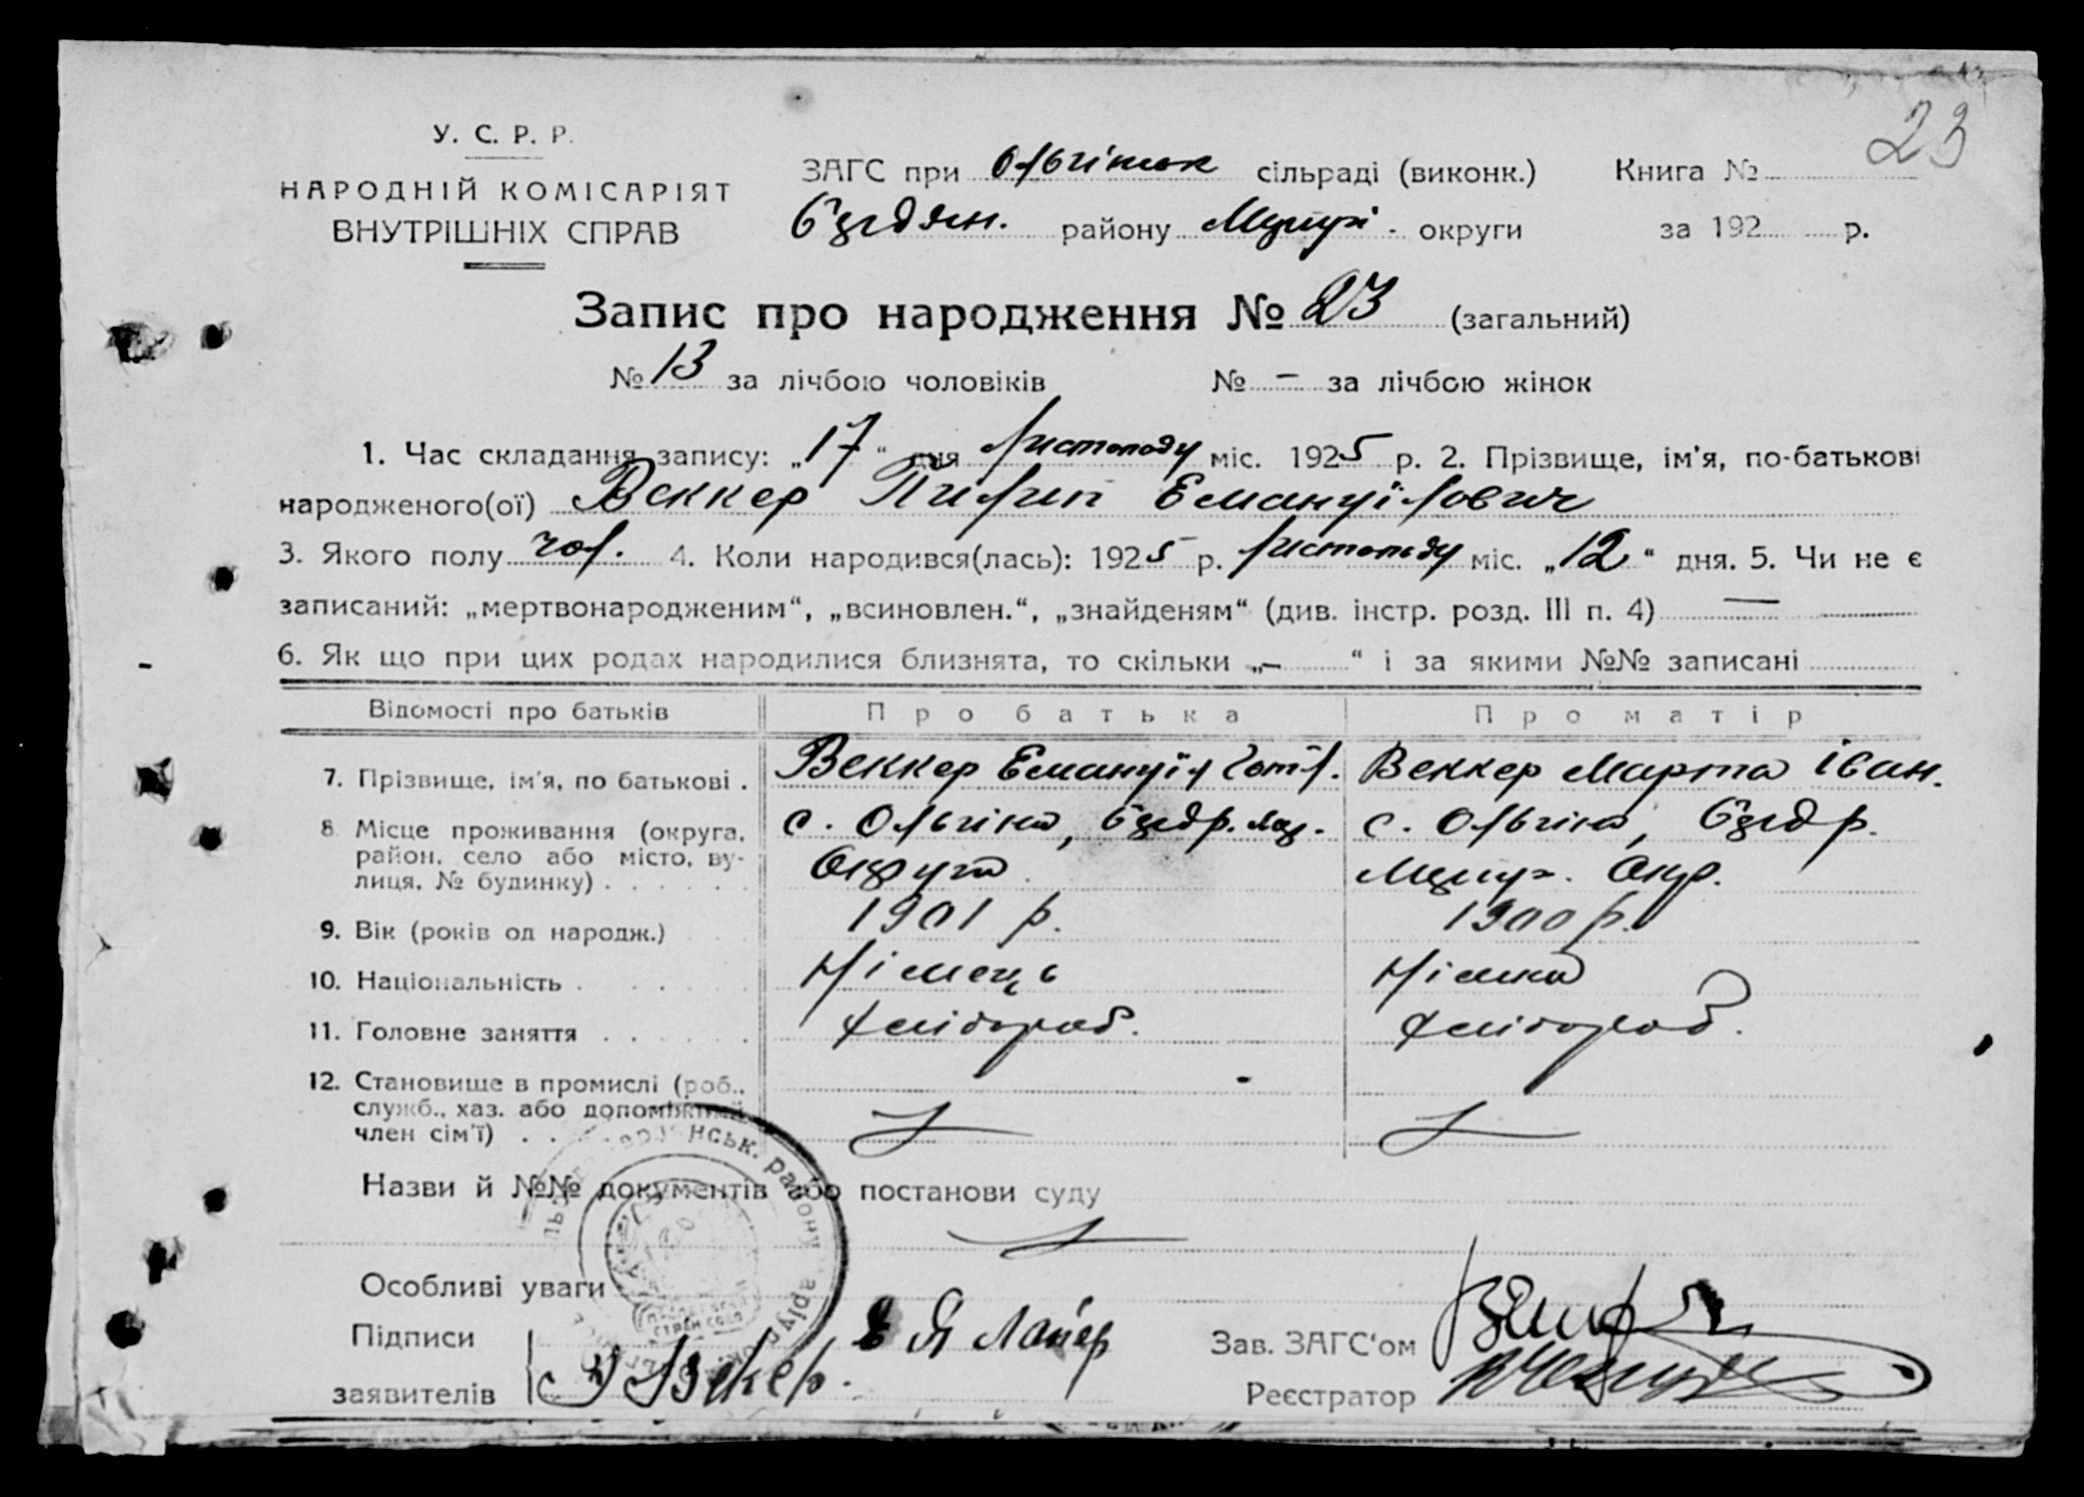 23
У. С. Р. Р.
НАРОДНІЙ КОМІСАРІЯТ
ВНУТРІШНІХ СПРАВ
ЗАГС при Ольгінськ сільраді (виконк.) Книга №
району Маріуп. округи за 192 р.
Запис про народження № 23 (загальний)
№ 13 за лічбою чоловіків № – за лічбою жінок
1. Час складання запису: „17“ дня Листопаду міс. 1925 р. 2. Прізвище, ім'я, по-батькові
народженого(ої) Веккер Пилип Емануїлович
3. Якого полу чол. 4. Коли народився(лась): 1925 р. листопаду міс. „12“ дня. 5. Чи не є
записаний: „мертвонародженим“, „всиновлен.“, „знайденям“ (див. інстр. розд. III п. 4) —
6. Як що при цих родах народилися близнята, то скільки „–“ і за якими №№ записані
Відомості про батьків Про батька Про матір
7. Прізвище, ім'я, по батькові . Веккер Емануїл Готл. Веккер Марта Іван.
8. Місце проживання (округа, район, село або місто, вулиця, № будинку) с. Ольгіно, Округа с. Ольгіно, Маріуп. Окр.
9. Вік (років од народж.) 1901 р. 1900 р.
10. Національність Німець Німка
11. Головне заняття Хлібороб. Хлібороб.
12. Становище в промислі (роб., служб., хаз. або допоміжний член сім'ї)
Назви й №№ документів або постанови суду
Особливі уваги
Підписи Я Лаиер Зав. ЗАГС'ом
заявителів Векер. Реєстратор
району